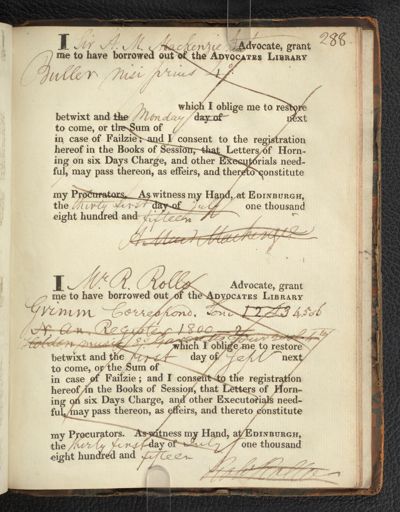 288.
I Sir A. M. Mackenzie Bt Advocate, grant
me to have borrowed out of the ADVOCATES LIBRARY
Buller nisi prius 4o.
which I oblige me to restore
betwixt and the Monday day of next
to come, or the Sum of
in case of Failzie; and I consent to the registration
hereof in the Books of Session, that Letters of Horn-
ing on six Days Charge, and other Executorials need-
ful, may pass thereon, as effeirs, and thereto constitute
my Procurators. As witness my Hand, at EDINBURGH,
the thirty first day of July one thousand
eight hundred and fifteen
Mackenzie
I Mr. R. Rollo Advocate, grant
me to have borrowed out of the ADVOCATES LIBRARY
Grimm Correspond. Tom. 1 2 & 3
An. Register 1800
which I oblige me to restore
betwixt and the first day of next
to come, or the Sum of
in case of Failzie; and I consent to the registration
hereof in the Books of Session, that Letters of Horn-
ing on six Days Charge, and other Executorials need-
ful, may pass thereon, as effeirs, and thereto constitute
my Procurators. As witness my Hand, at EDINBURGH,
the thirty first day of July one thousand
eight hundred and fifteen
Rollo